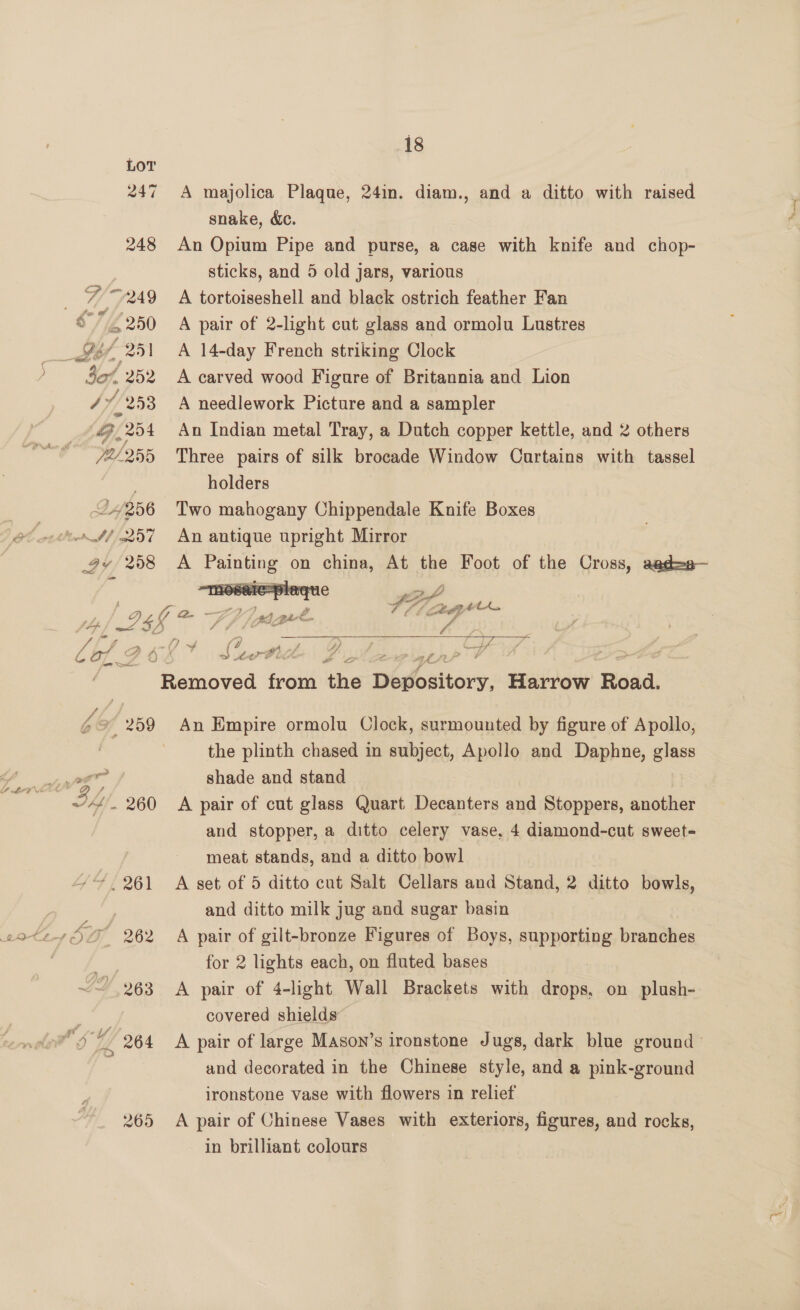 18
LOT
247 A majolica Plaque, 24in. diam., and a ditto with raised
snake, &c.
248 An Opium Pipe and purse, a case with knife and chop-
sticks, and 5 old jars, various
249 A tortoiseshell and black ostrich feather Fan
250 A pair of 2-light cut glass and ormolu Lustres
251 A 14-day French striking Clock
252 A carved wood Figure of Britannia and Lion
253 A needlework Picture and a sampler
254 An Indian metal Tray, a Dutch copper kettle, and 2 others
255 Three pairs of silk brocade Window Curtains with tassel
holders
256 Two mahogany Chippendale Knife Boxes
257 An antique upright Mirror
258 A Painting on china, At the Foot of the Cross, and a
mosaic plaque
Removed from the Depository, Harrow Road.
259 An Empire ormolu Clock, surmounted by figure of Apollo,
the plinth chased in subject, Apollo and Daphne, glass
shade and stand
260 A pair of cut glass Quart Decanters and Stoppers, another
and stopper, a ditto celery vase, 4 diamond-cut sweet-
meat stands, and a ditto bowl
261 A set of 5 ditto cut Salt Cellars and Stand, 2 ditto bowls,
and ditto milk jug and sugar basin
262 A pair of gilt-bronze Figures of Boys, supporting branches
for 2 lights each, on fluted bases
263 A pair of 4-light Wall Brackets with drops, on plush-
covered shields
264 A pair of large Mason's ironstone Jugs, dark blue ground
and decorated in the Chinese style, and a pink-ground
ironstone vase with flowers in relief
265 A pair of Chinese Vases with exteriors, figures, and rocks,
in brilliant colours